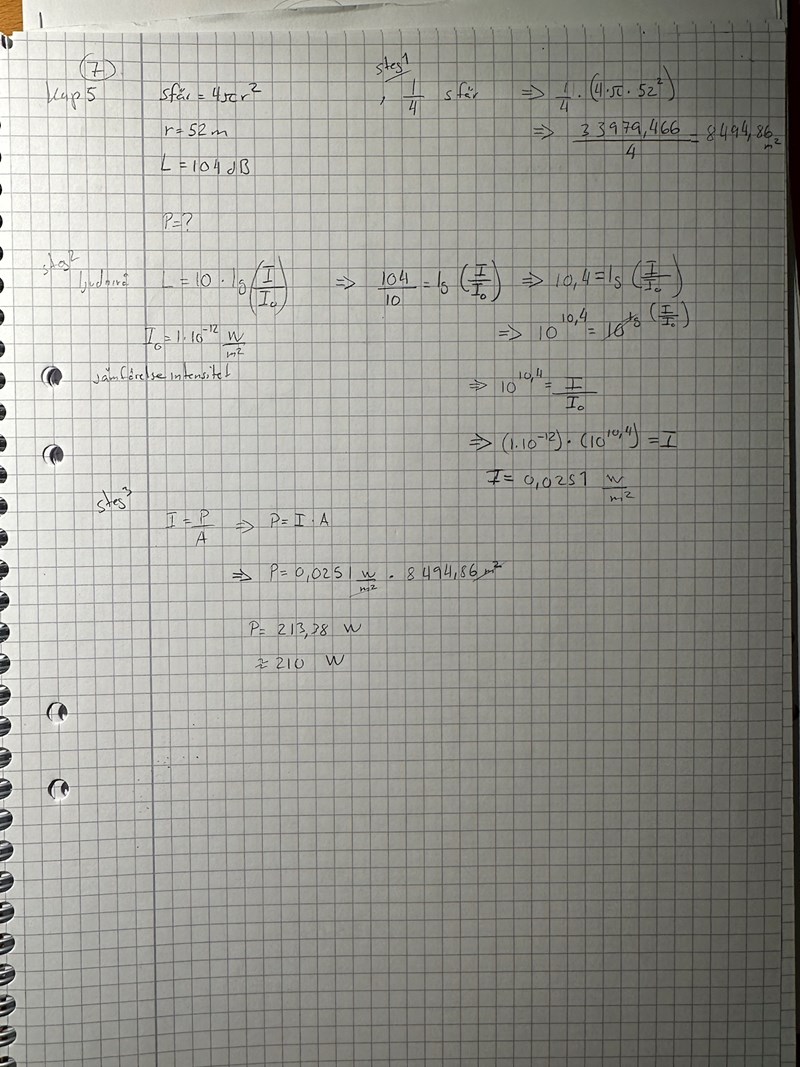 (7)
Kap 5
Sfär = 4πr²
steg 1
, 1/4 sfär ⇒ 1/4 · (4·π·52²)
r = 52 m
⇒ 33979,466/4 = 8494,86 m²
L = 104 dB
P = ?
steg 2
Ljudnivå L = 10 · lg(I/I₀) ⇒ 104/10 = lg(I/I₀) ⇒ 10,4 = lg(I/I₀)
⇒ 10^10,4 = 10^lg(I/I₀)
I₀ = 1·10⁻¹² W/m²
jämförelse intensitet
⇒ 10^10,4 = I/I₀
⇒ (1·10⁻¹²) · (10^10,4) = I
I = 0,0251 W/m²
steg 3
I = P/A ⇒ P = I · A
⇒ P = 0,0251 W/m² · 8494,86 m²
P = 213,38 W
≈ 210 W